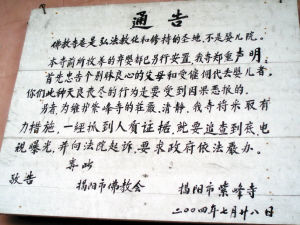 通告
佛教寺庙是弘法教化和修持的圣地,不是婴儿院。
本寺前所收养的弃婴都已另行安置,我寺郑重声明,
首先忠告个别昧良心的父母和受雇倒代丢婴儿者。
你们此种天良丧尽的行为是要受到因果恶报的。
另者,为维护紫峰寺的庄严、清静,我寺将采取有
力措施,一经抓到人质证据,就要追查到底,电
视曝光,并向法院起诉,要求政府依法严办。
专此
敬告 揭阳市佛教会 揭阳市紫峰寺
二00四年七月廿八日